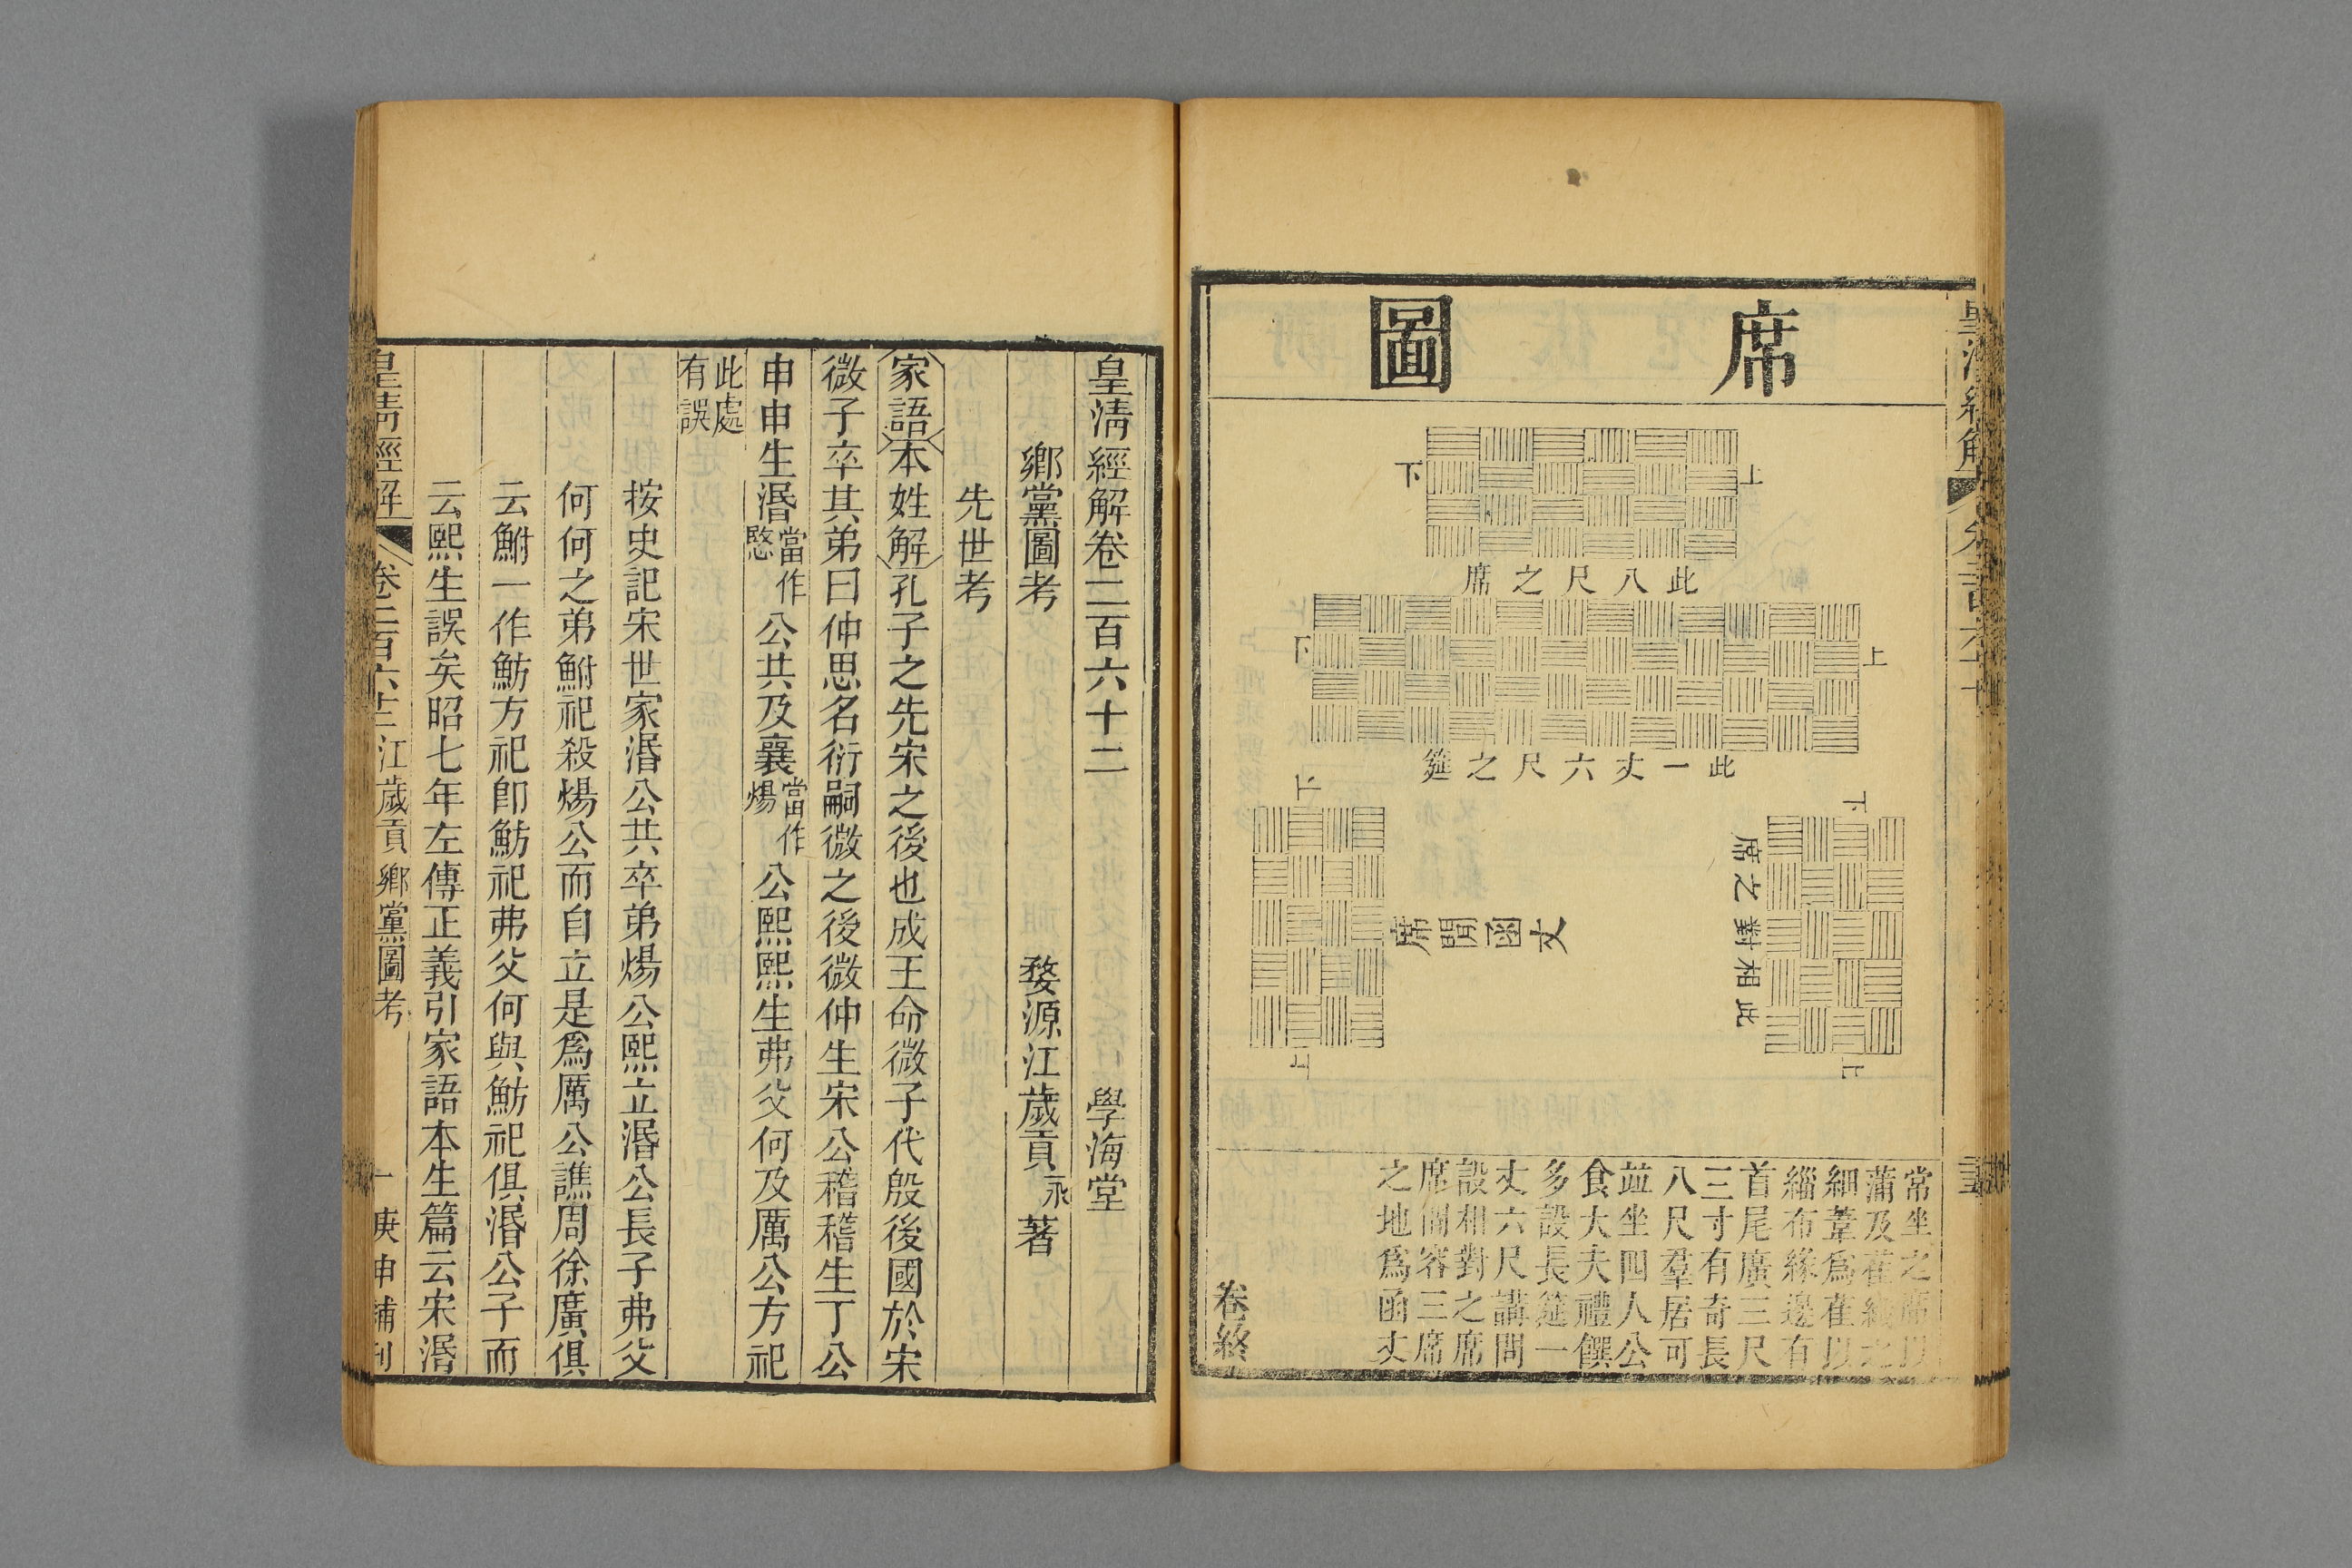 席圖
上
下
此八尺之席
上
下
此一丈六尺之筵
下
此相對之席
上
上
席間函丈
下
常坐之席以
蒲及萑細之
細葦爲萑以
緇布緣邊有
首尾廣三尺
三寸有奇長
八尺羣居可
竝坐四人公
食大夫禮饌
多設長筵一
丈六尺講問
設相對之席
席間容三席
之地爲函丈
卷終
皇清經解卷二百六十二 學海堂
鄉黨圖考 婺源江歲貢永著
先世考
家語本姓解孔子之先宋之後也成王命微子代殷後國於宋
微子卒其弟曰仲思名衍嗣微之後微仲生宋公稽稽生丁公
申申生湣當作愍公共及襄當作煬公熙熙生弗父何及厲公方祀
此處有誤
按史記宋世家湣公共卒弟煬公熙立湣公長子弗父
何何之弟鮒祀殺煬公而自立是爲厲公譙周徐廣俱
云鮒一作魴方祀卽魴祀弗父何與魴祀俱湣公子而
云熙生誤矣昭七年左傳正義引家語本生篇云宋湣
皇清經解 卷二百六十二 江歲貢鄉黨圖考 一 庚申補刊